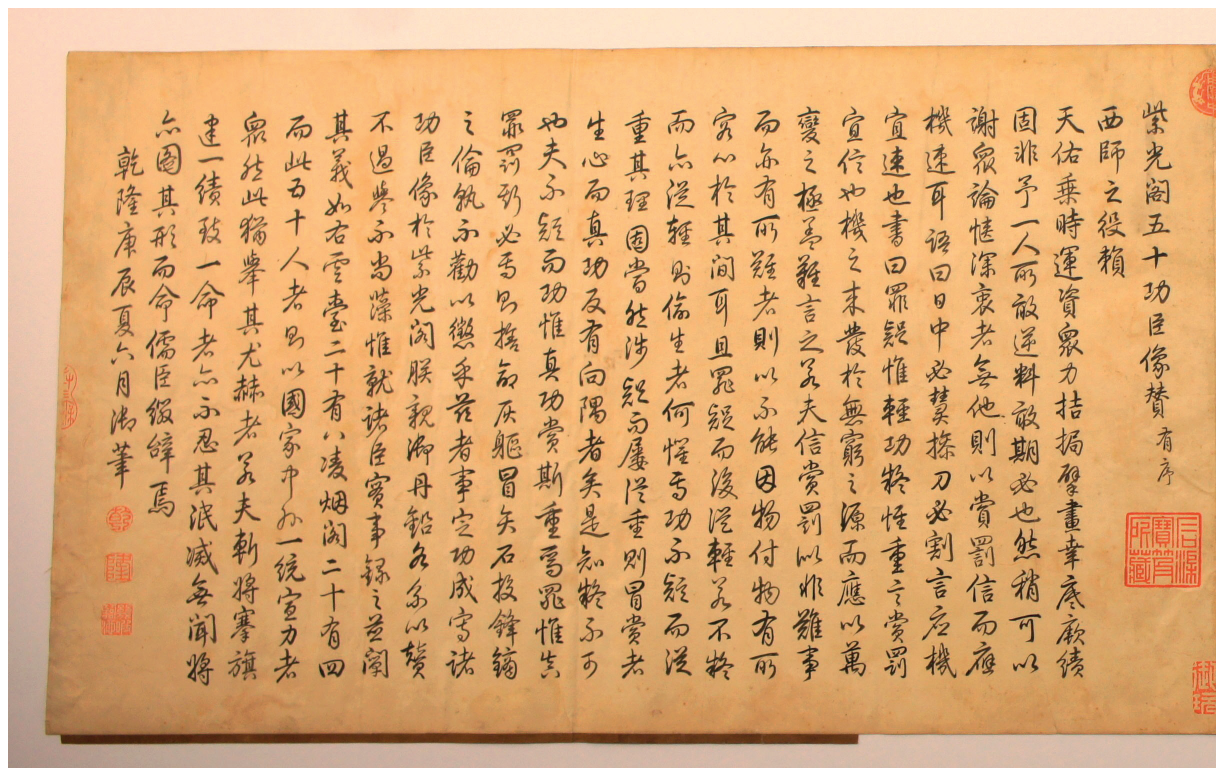 紫光阁五十功臣像赞有序
西師之役賴
天佑乗時運資衆力拮据擘畫幸底厥績
固非予一人所敢逆料敢期必也然稍可以
謝衆論愜深衷者無他則以賞罰信而應
機速耳語曰日中必熭操刀必割言应機
宜速也書曰罪疑惟輕功疑惟重言賞罰
宜信也機之来發於無窮之源而應以萬
變之極盖難言之若夫信賞罰似非難事
而亦有所難者則以不能因物付物有所
容心於其間耳且罪疑而後從輕若不疑
而亦從輕則偷生者何懼焉功不疑而從
重其理固當然涉疑而屢從重則冒賞者
生心而真功反有向隅者矣是知疑不可
也夫不疑而功惟真功賞斯重焉罪惟真
罪罰斯必焉則捨命灰軀冒矢石投鋒鏑
之倫孰不勸以懲乎兹者事定功成寫諸
功臣像於紫光阁朕親御丹鉛各系以贊
不過誉不尚藻惟就諸臣實事録之並闡
其義如右雲臺二十有八凌烟阁二十有四
而此五十人者則以國家中外一統宣力者
衆然此猶舉其尤赫者若夫斬將搴旗
建一績致一命者亦不忍其泯滅無聞將
亦圖其形而命儒臣缀辭焉
乾隆庚辰夏六月御筆
乾
隆
石渠
寶笈
所藏